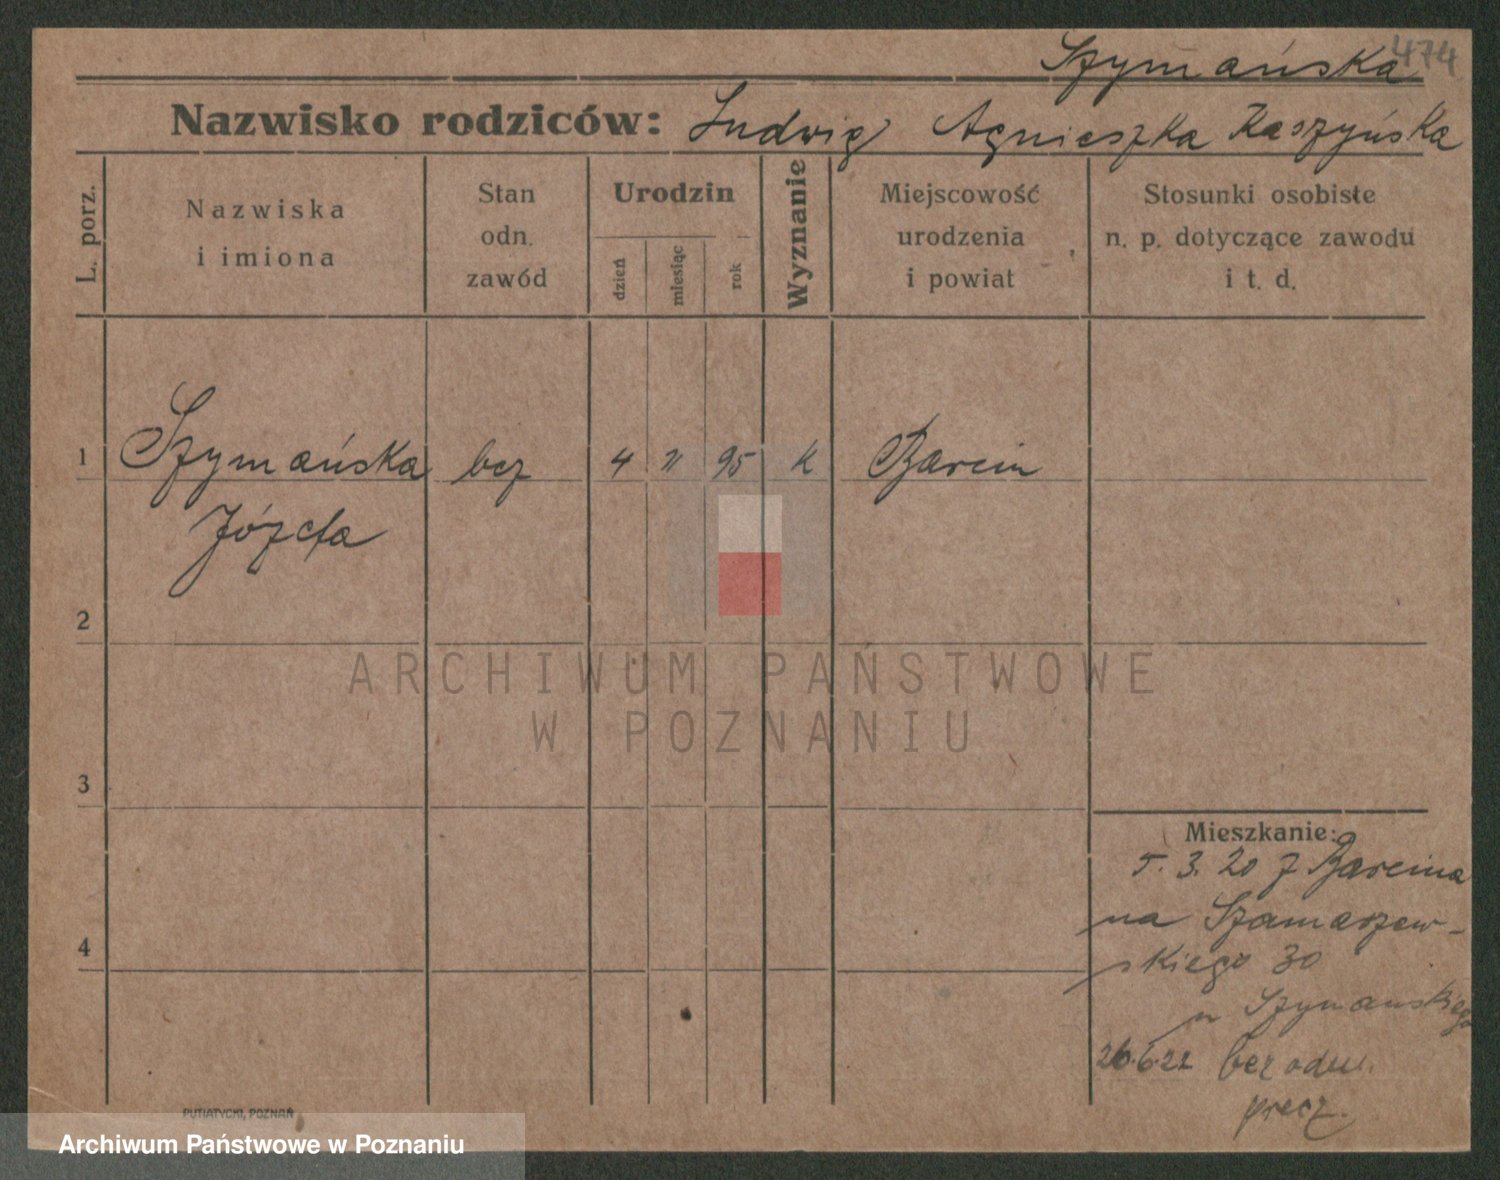 474
Szymańska
Nazwisko rodziców: Ludwig Agnieszka Kaszyńska
L. porz.
Nazwiska
i imiona
Stan
odn.
zawód
Urodzin
dzień
miesiąc
rok
Wyznanie
Miejscowość
urodzenia
i powiat
Stosunki osobiste
n. p. dotyczące zawodu
i t. d.
1 Szymańska bez 4 11 95 k Barcin
Józefa
2
3
4
ARCHIWUM PAŃSTWOWE
W POZNANIU
Mieszkanie:
5. 3. 20 z Barcina
na Szamarzew-
skiego 30
u Szymańskiego
26.6.22 bez odm.
precz.
PUTIATYCKI, POZNAŃ
Archiwum Państwowe w Poznaniu